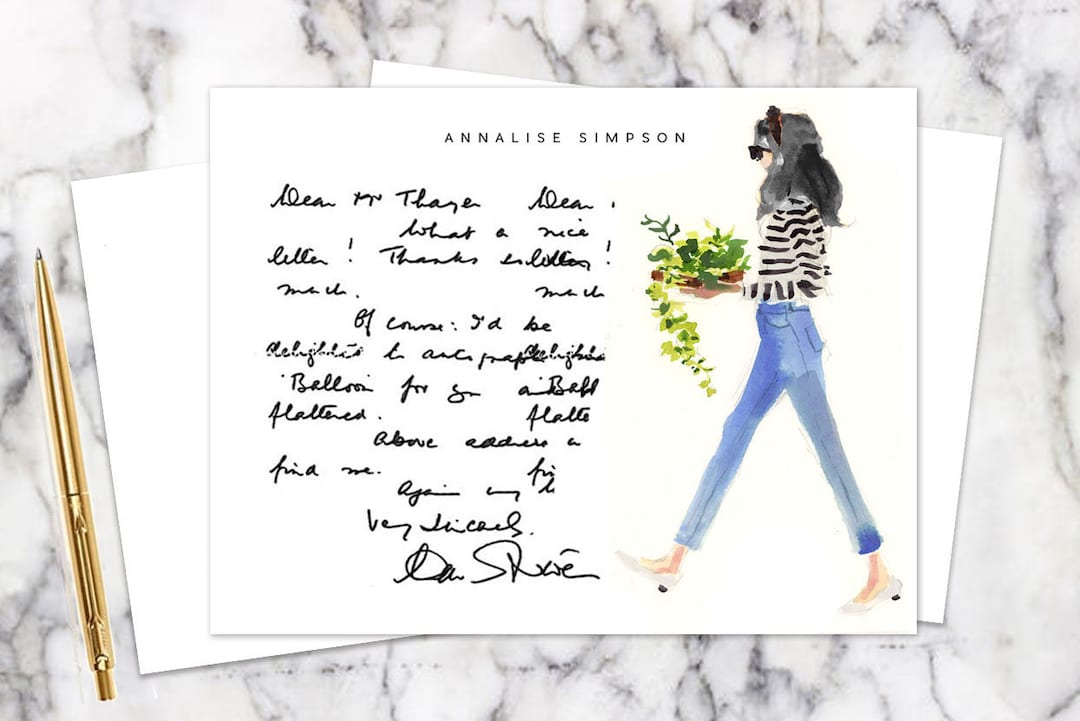 ANNALISE SIMPSON
Dear Mr Thayer Dear
What a nice
letter! Thanks letter!
much. much
Of course: I'd be
delighted to autograph delighted
Balloon for you
flattered. flatte
above address
find me. fi
Again my
Very sincerely.